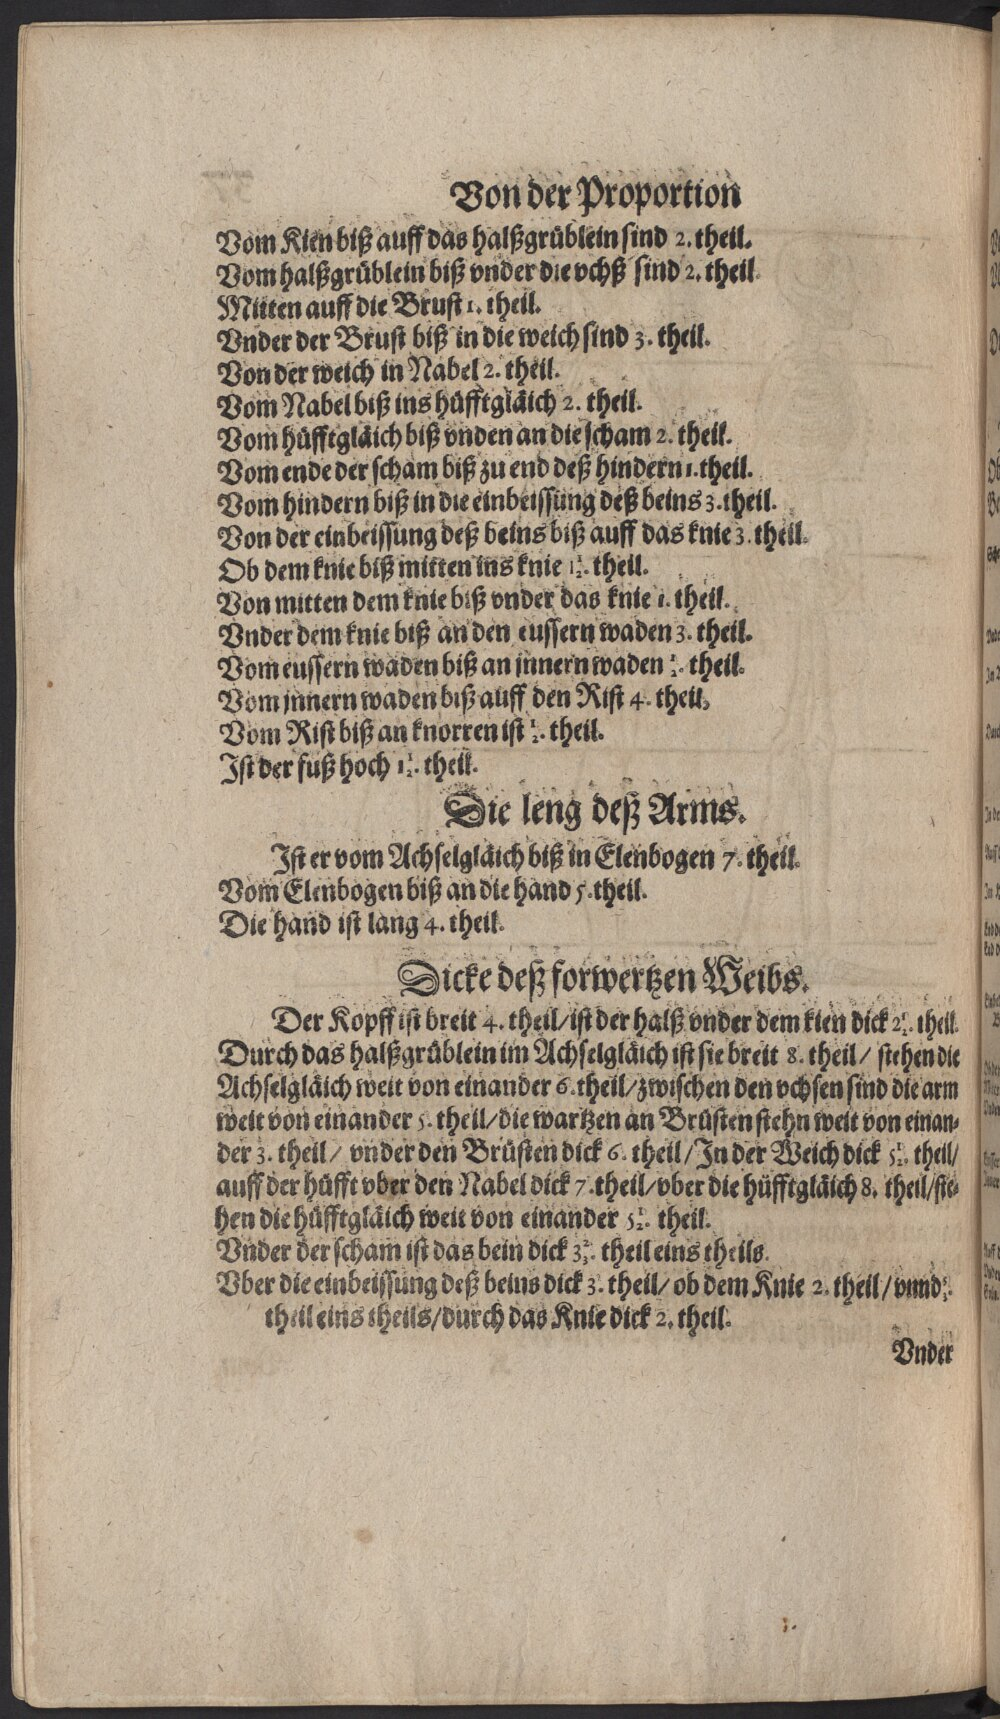 Von der Proportion
Vom Kien biß auff das halßgrüblein sind 2. theil.
Vom halßgrüblein biß vnder die vchß sind 2. theil.
Mitten auff die Brust 1. theil.
Vnder der Brust biß in die weich sind 3. theil.
Von der weich in Nabel 2. theil.
Vom Nabel biß ins hüfftgläich 2. theil.
Vom hüfftgläich biß vnden an die scham 2. theil.
Vom ende der scham biß zu end deß hindern 1. theil.
Vom hindern biß in die einbeissung deß beins 3. theil.
Von der einbeissung deß beins biß auff das knie 3. theil.
Ob dem knie biß mitten ins knie 1½. theil.
Von mitten dem knie biß vnder das knie 1. theil.
Vnder dem knie biß an den eussern waden 3. theil.
Vom eussern waden biß an jnnern waden ½. theil.
Vom jnnern waden biß auff den Rist 4. theil.
Vom Rist biß an knorren ist ½. theil.
Ist der fuß hoch 1½. theil.
Die leng deß Arms.
Ist er vom Achselgläich biß in Elenbogen 7. theil.
Vom Elenbogen biß an die hand 5. theil.
Die hand ist lang 4. theil.
Dicke deß forwertzen Weibs.
Der Kopff ist breit 4. theil/ ist der halß vnder dem kien dick 2½. theil.
Durch das halßgrüblein im Achselgläich ist sie breit 8. theil/ stehen die
Achselgläich weit von einander 6. theil/ zwischen den vchsen sind die arm
weit von einander 5. theil/ die wartzen an Brüsten stehn weit von einan-
der 3. theil/ vnder den Brüsten dick 6. theil/ In der Weich dick 5½. theil/
auff der hüfft vber den Nabel dick 7. theil/ vber die hüfftgläich 8. theil/ ste-
hen die hüfftgläich weit von einander 5½. theil.
Vnder der scham ist das bein dick 3⅔. theil eins theils.
Vber die einbeissung deß beins dick 3. theil/ ob dem Knie 2. theil/ vnnd
theil eins theils/ durch das Knie dick 2. theil.
Vnder